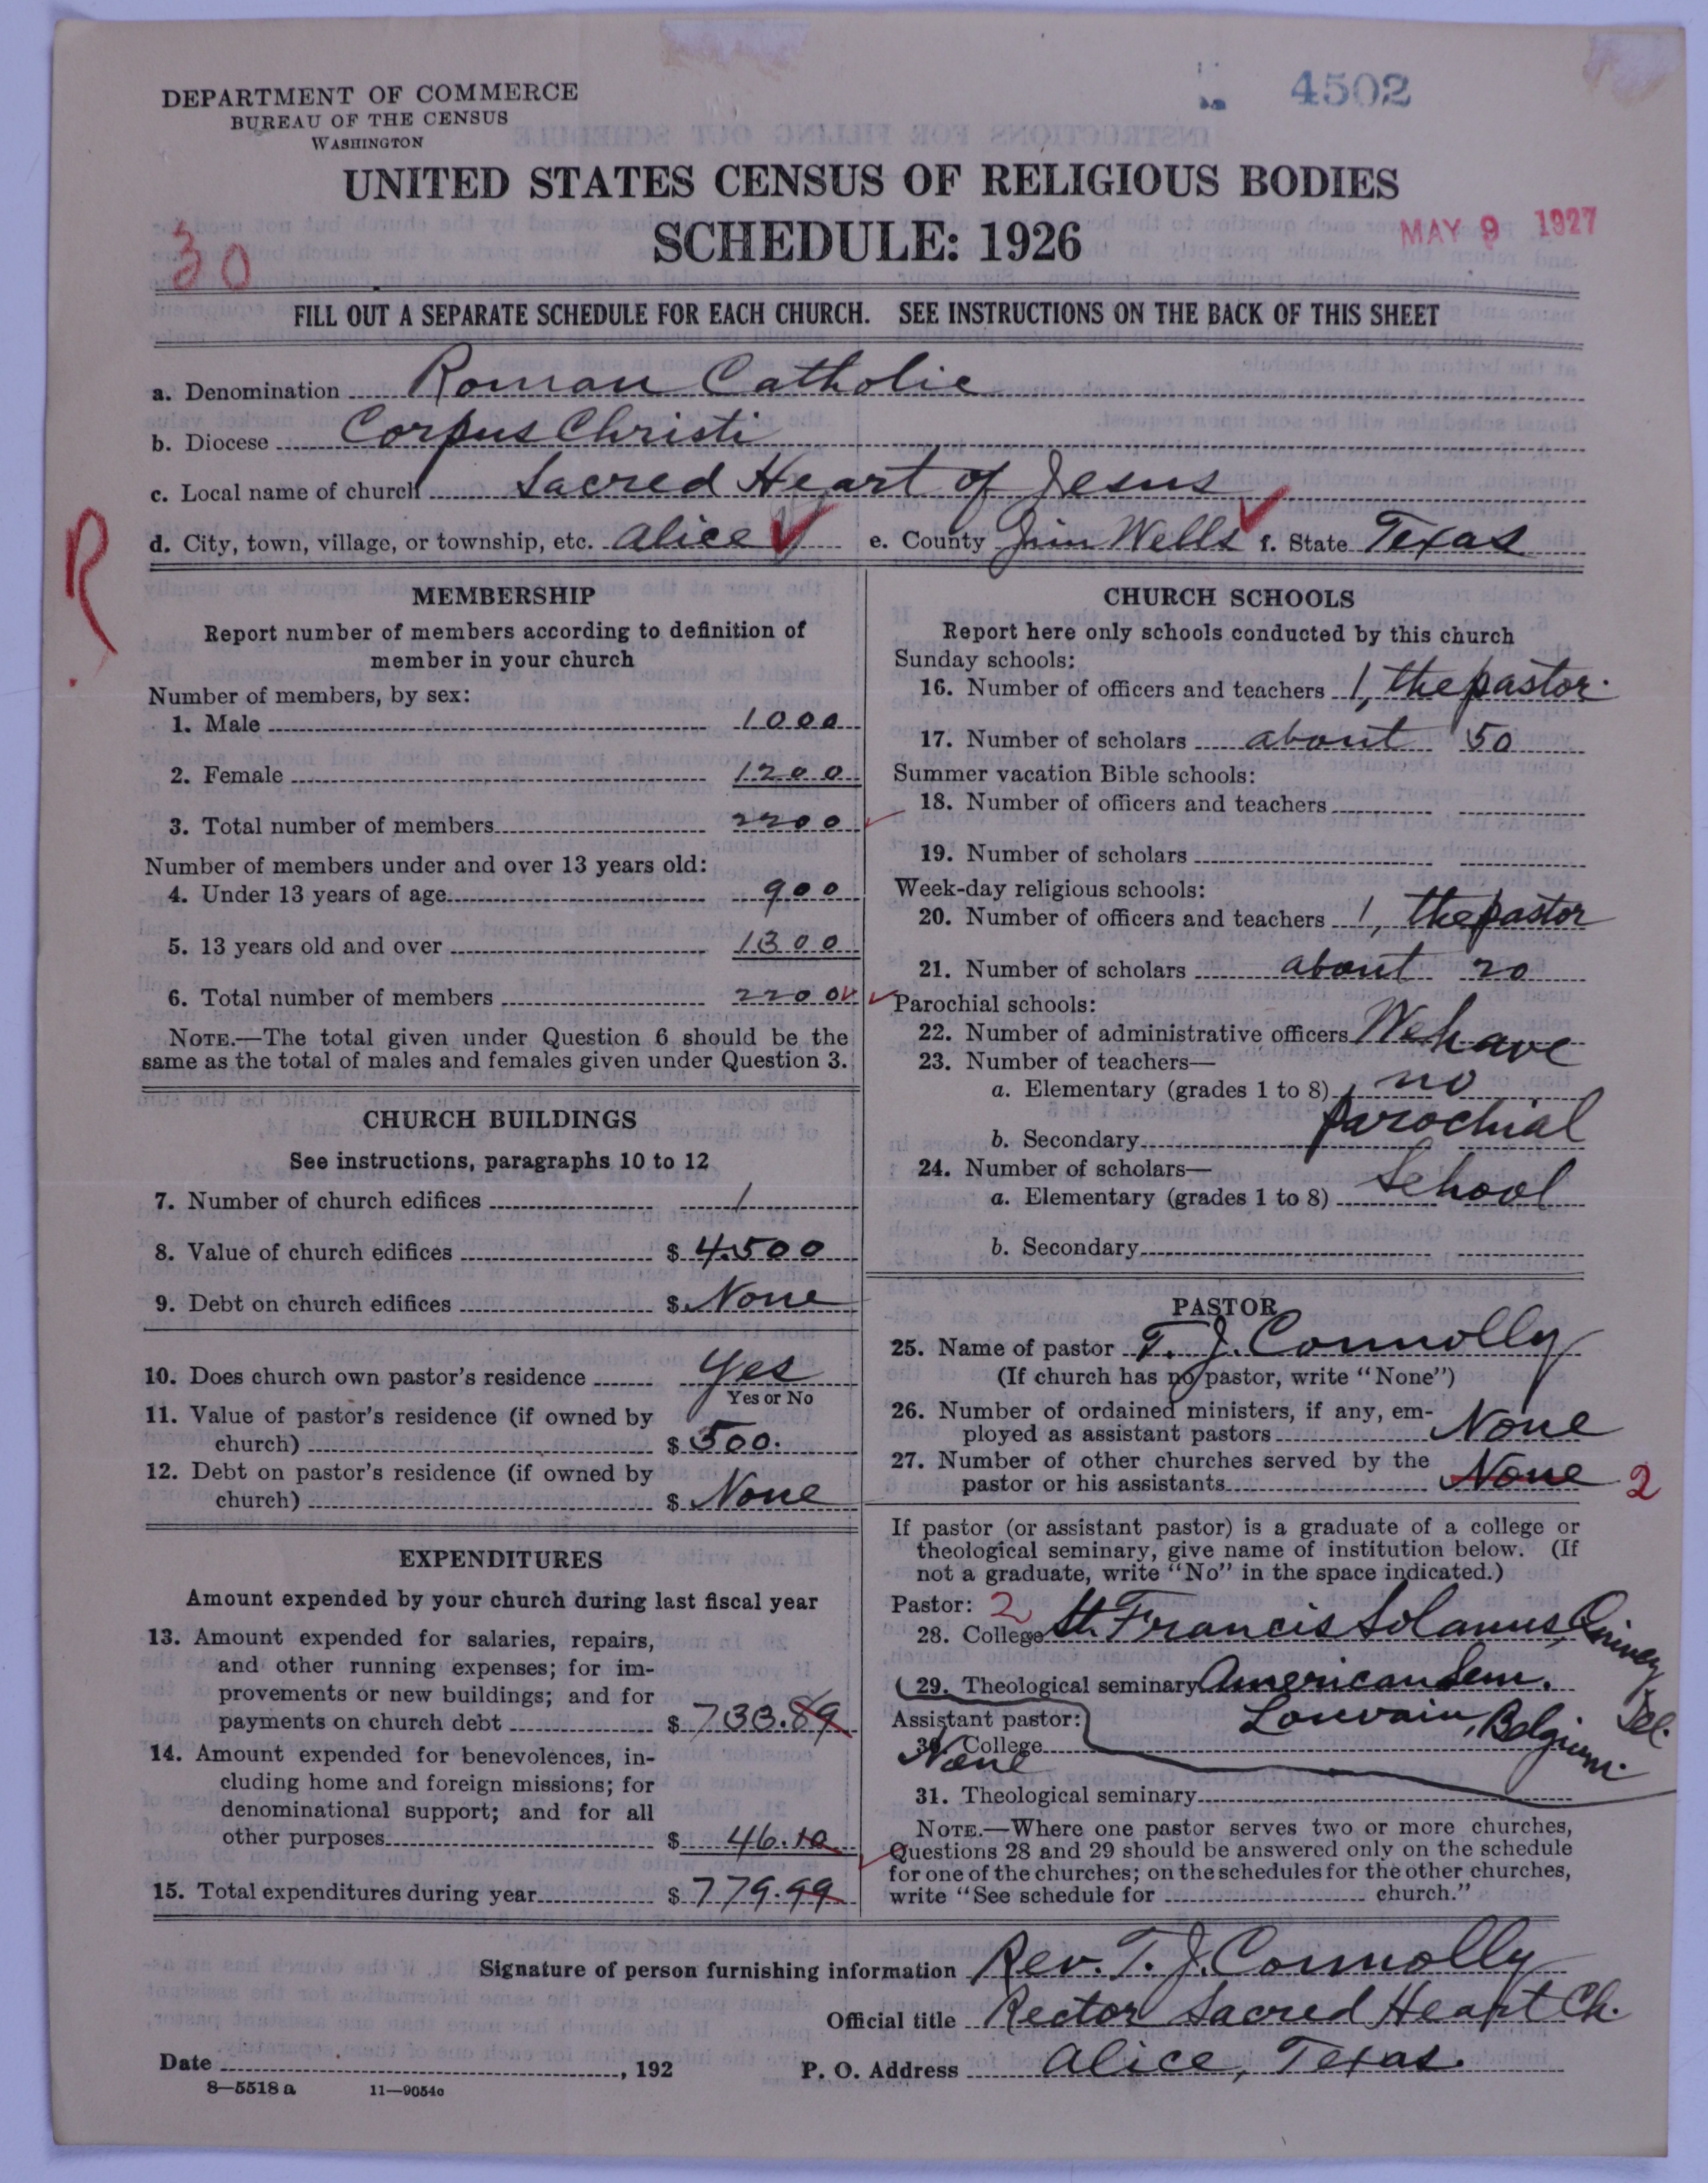 DEPARTMENT OF COMMERCE
BUREAU OF THE CENSUS
WASHINGTON
4502
UNITED STATES CENSUS OF RELIGIOUS BODIES
SCHEDULE: 1926
MAY 9 1927
30
FILL OUT A SEPARATE SCHEDULE FOR EACH CHURCH. SEE INSTRUCTIONS ON THE BACK OF THIS SHEET
a. Denomination Roman Catholic
b. Diocese Corpus Christi
c. Local name of church Sacred Heart of Jesus
d. City, town, village, or township, etc. Alice e. County Jim Wells f. State Texas
R
MEMBERSHIP
Report number of members according to definition of
member in your church
Number of members, by sex:
1. Male 1000
2. Female 1200
3. Total number of members 2200
Number of members under and over 13 years old:
4. Under 13 years of age 900
5. 13 years old and over 1300
6. Total number of members 2200
NOTE.—The total given under Question 6 should be the
same as the total of males and females given under Question 3.
CHURCH BUILDINGS
See instructions, paragraphs 10 to 12
7. Number of church edifices 1
8. Value of church edifices $4500
9. Debt on church edifices $ None
10. Does church own pastor's residence Yes
Yes or No
11. Value of pastor's residence (if owned by
church) $ 500.
12. Debt on pastor's residence (if owned by
church) $ None
EXPENDITURES
Amount expended by your church during last fiscal year
13. Amount expended for salaries, repairs,
and other running expenses; for im-
provements or new buildings; and for
payments on church debt $ 733.89
14. Amount expended for benevolences, in-
cluding home and foreign missions; for
denominational support; and for all
other purposes $ 46.10
15. Total expenditures during year $ 779.99
CHURCH SCHOOLS
Report here only schools conducted by this church
Sunday schools:
16. Number of officers and teachers 1, the pastor.
17. Number of scholars about 50
Summer vacation Bible schools:
18. Number of officers and teachers
19. Number of scholars
Week-day religious schools:
20. Number of officers and teachers 1, the pastor
21. Number of scholars about 20
Parochial schools:
22. Number of administrative officers We have
23. Number of teachers—
a. Elementary (grades 1 to 8) no
b. Secondary parochial
24. Number of scholars—
a. Elementary (grades 1 to 8) School
b. Secondary
PASTOR
25. Name of pastor T. J. Connolly
(If church has no pastor, write "None")
26. Number of ordained ministers, if any, em-
ployed as assistant pastors None
27. Number of other churches served by the
pastor or his assistants None 2
If pastor (or assistant pastor) is a graduate of a college or
theological seminary, give name of institution below. (If
not a graduate, write "No" in the space indicated.)
Pastor: 2
28. College St. Francis Solanus, Quincy
29. Theological seminary American Sem.
Louvain, Belgium.
Assistant pastor:
30. College
None
31. Theological seminary
NOTE.—Where one pastor serves two or more churches,
Questions 28 and 29 should be answered only on the schedule
for one of the churches; on the schedules for the other churches,
write "See schedule for church."
Signature of person furnishing information Rev. T. J. Connolly
Official title Rector Sacred Heart Ch.
Date , 192 P. O. Address Alice, Texas.
8—5518 a 11—9054a